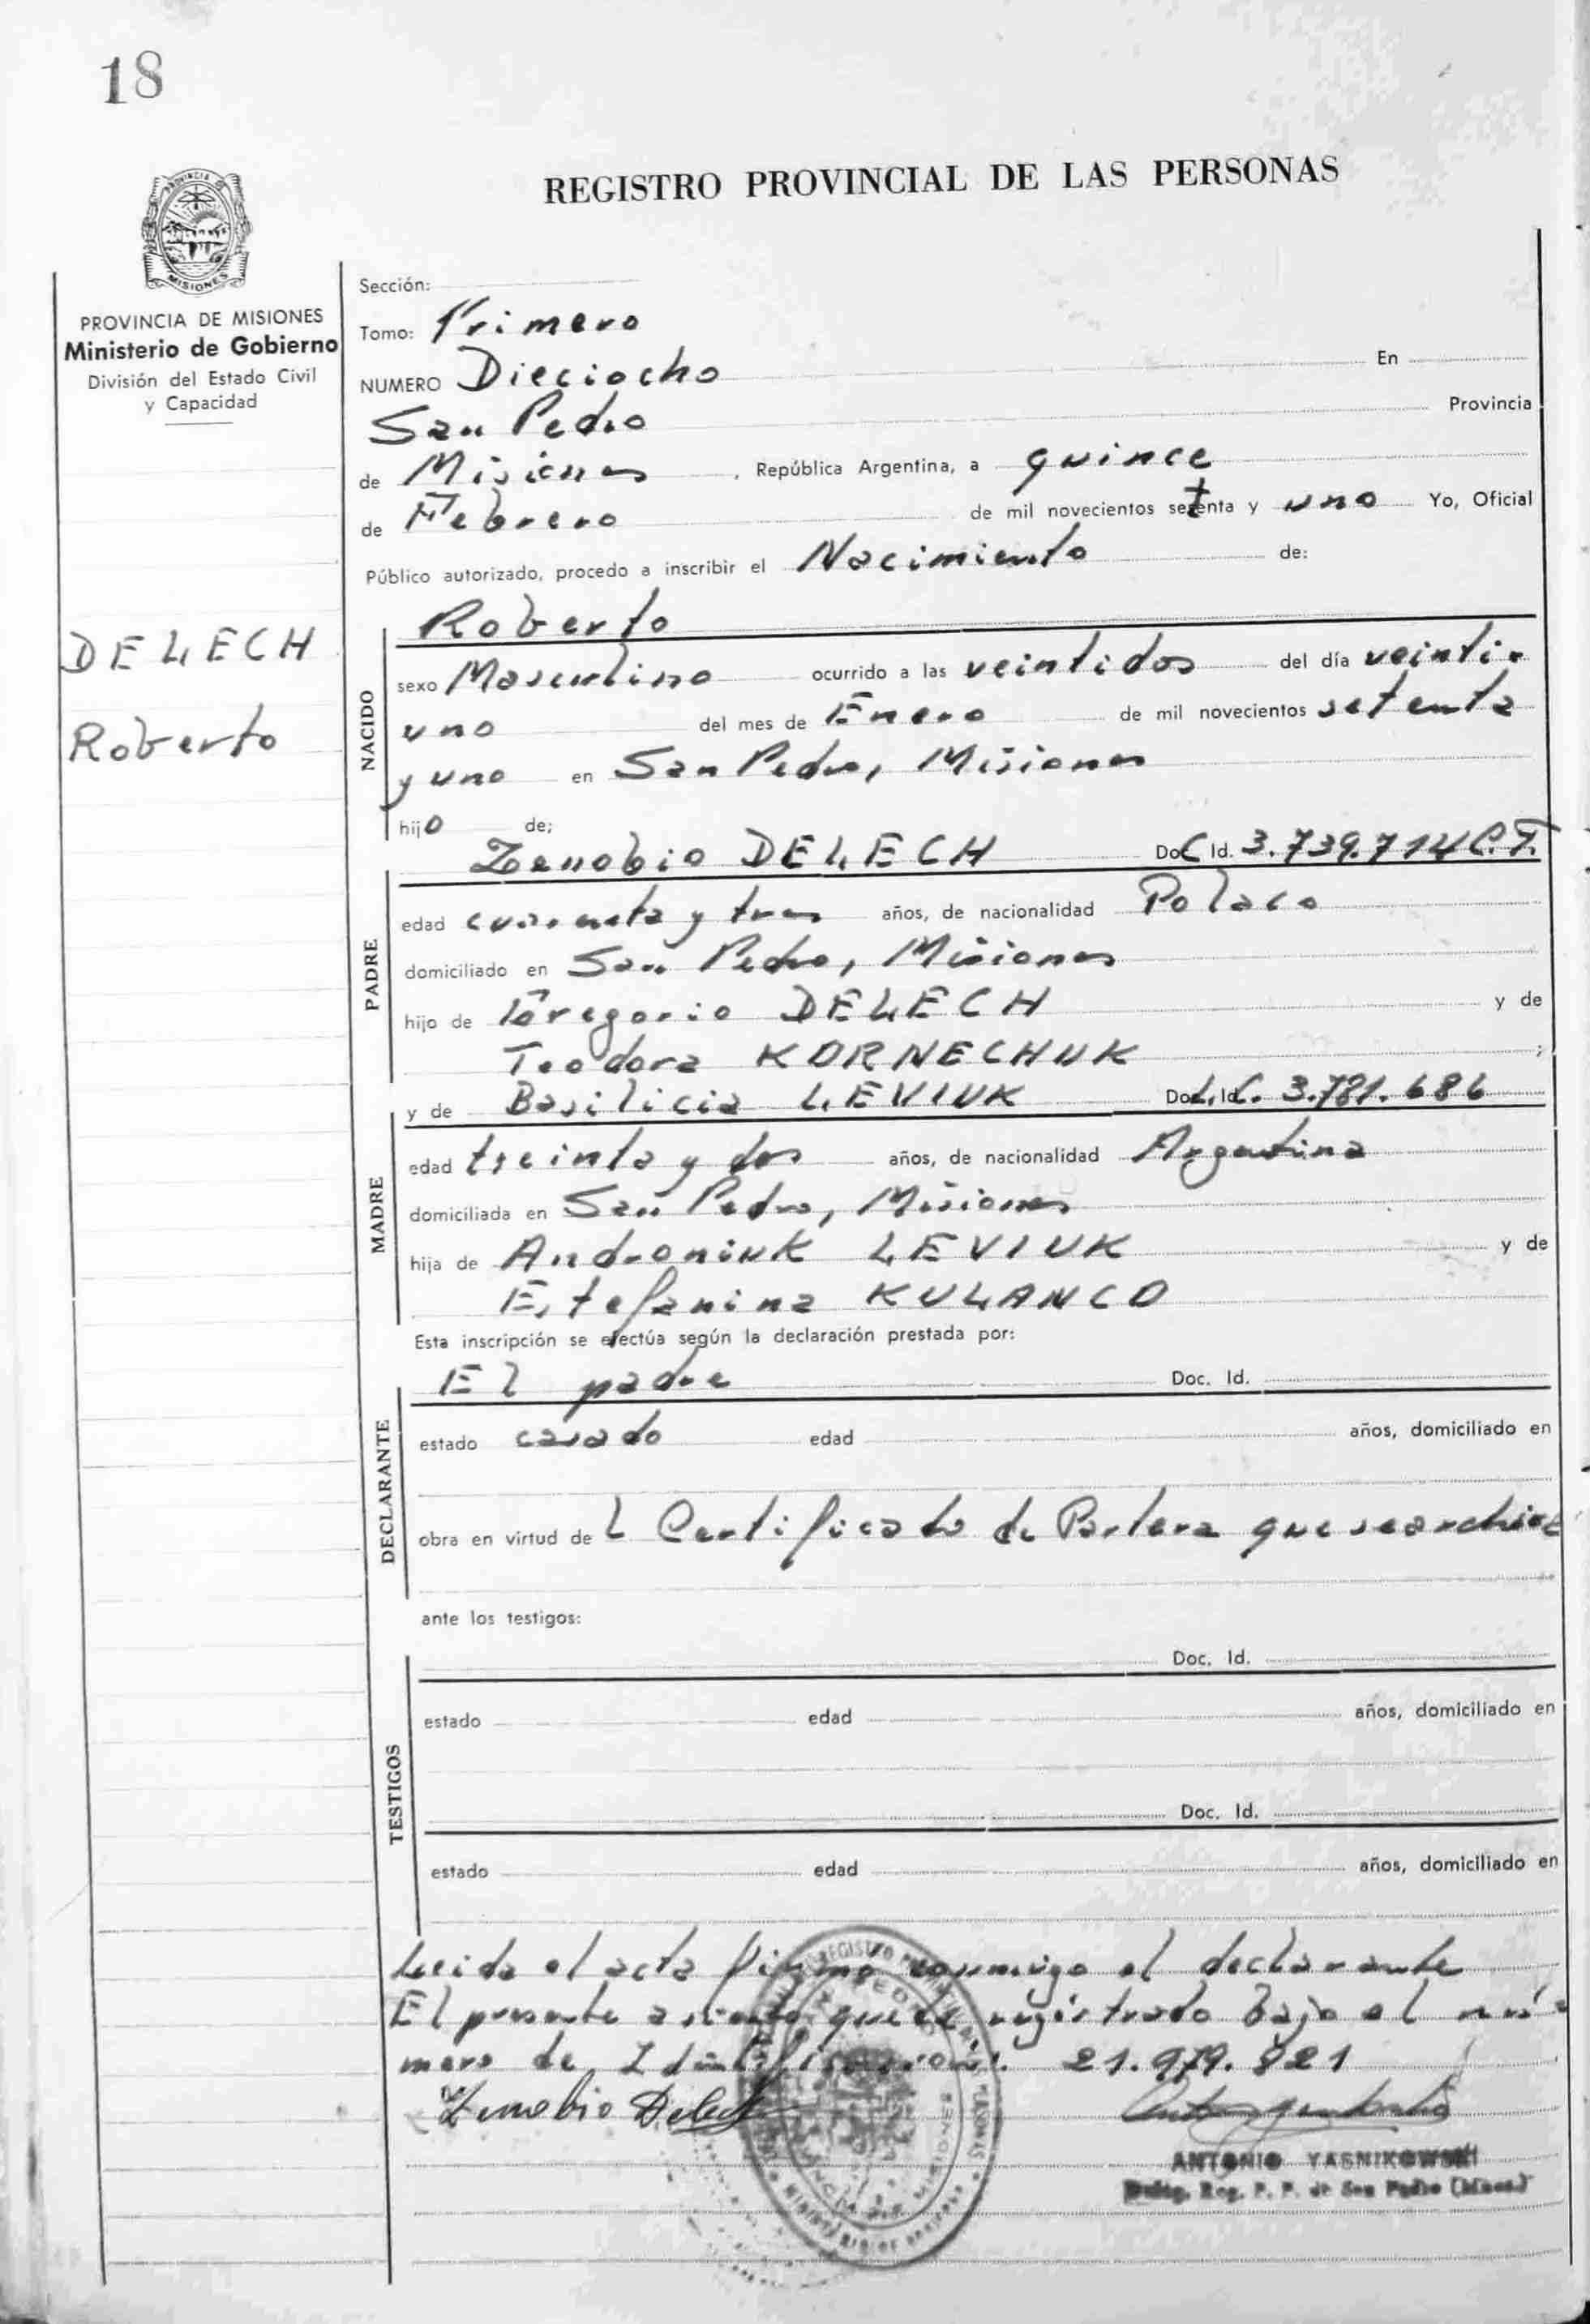 18
REGISTRO PROVINCIAL DE LAS PERSONAS
PROVINCIA DE MISIONES
Ministerio de Gobierno
División del Estado Civil
y Capacidad
DELECH
Roberto
Sección:
Tomo: Primero
NUMERO Dieciocho En
San Pedro Provincia
de Misiones, República Argentina, a quince
de Febrero de mil novecientos setenta y uno Yo, Oficial
Público autorizado, procedo a inscribir el Nacimiento de:
Roberto
NACIDO
sexo Masculino ocurrido a las veintidos del día veinti-
uno del mes de Enero de mil novecientos setenta
y uno en San Pedro, Misiones
hijo de;
Zenobio DELECH Doc Id. 3.739.714 C.F.
PADRE
edad cuarenta y tres años, de nacionalidad Polaco
domiciliado en San Pedro, Misiones
hijo de Gregorio DELECH y de
Teodora KORNECHUK ;
y de Basilicia LEVIUK Doc. Id. L.C. 3.781.686
MADRE
edad treinta y dos años, de nacionalidad Argentina
domiciliada en San Pedro, Misiones
hija de Androniuk LEVIUK y de
Estefanina KULANCO
Esta inscripción se efectúa según la declaración prestada por:
El padre Doc. Id.
DECLARANTE
estado casado edad años, domiciliado en
obra en virtud del Certificado de Partera que se archiva
ante los testigos:
Doc. Id.
TESTIGOS
estado edad años, domiciliado en
Doc. Id.
estado edad años, domiciliado en
Leida el acta firma conmigo el declarante
El presente asiento queda registrado bajo el nú-
mero de Identificación: 21.979.821
Zenobio Delech
ANTONIO YASNIKOWSKI
Deleg. Reg. P. P. de San Pedro (Mnes.)